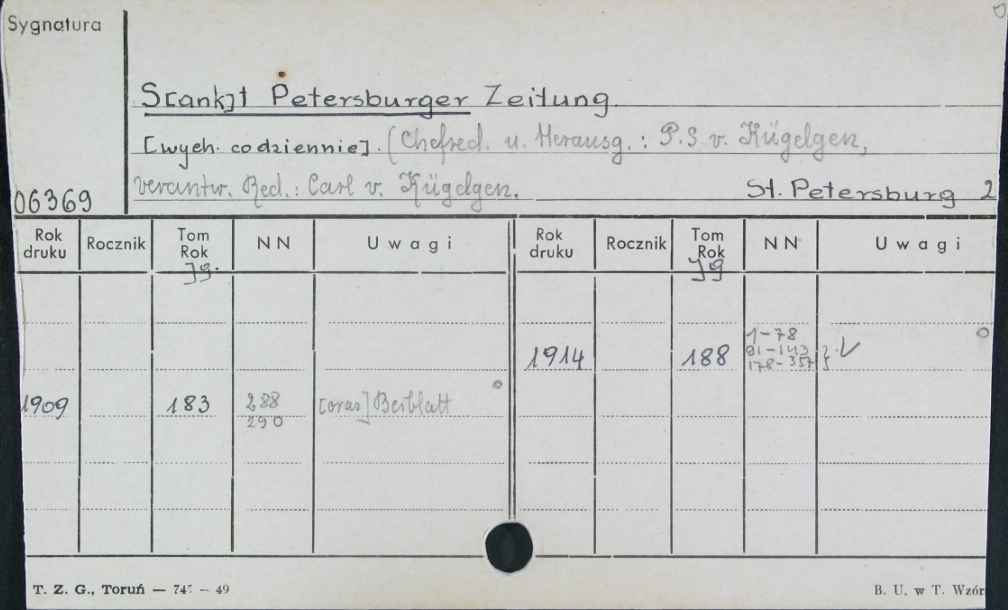 Sygnatura
S[ank]t Petersburger Zeitung
[wych. codziennie]. (Chefred. u. Herausg.: P.S. v. Kügelgen,
verantw. Red.: Carl v. Kügelgen.
St. Petersburg 2
06369
Rok druku Rocznik Tom Rok Jg. NN Uwagi Rok druku Rocznik Tom Rok Jg NN Uwagi
1914 188 1-78
91-143
178-357 }
1909 183 288
290 [oraz] Beiblatt
T. Z. G., Toruń — 49
B. U. w T. Wzór